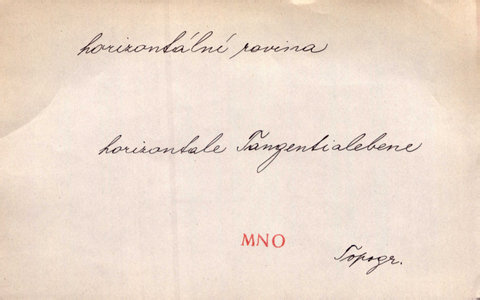 horizontální rovina
horizontale Tangentialebene
MNO
Topogr.